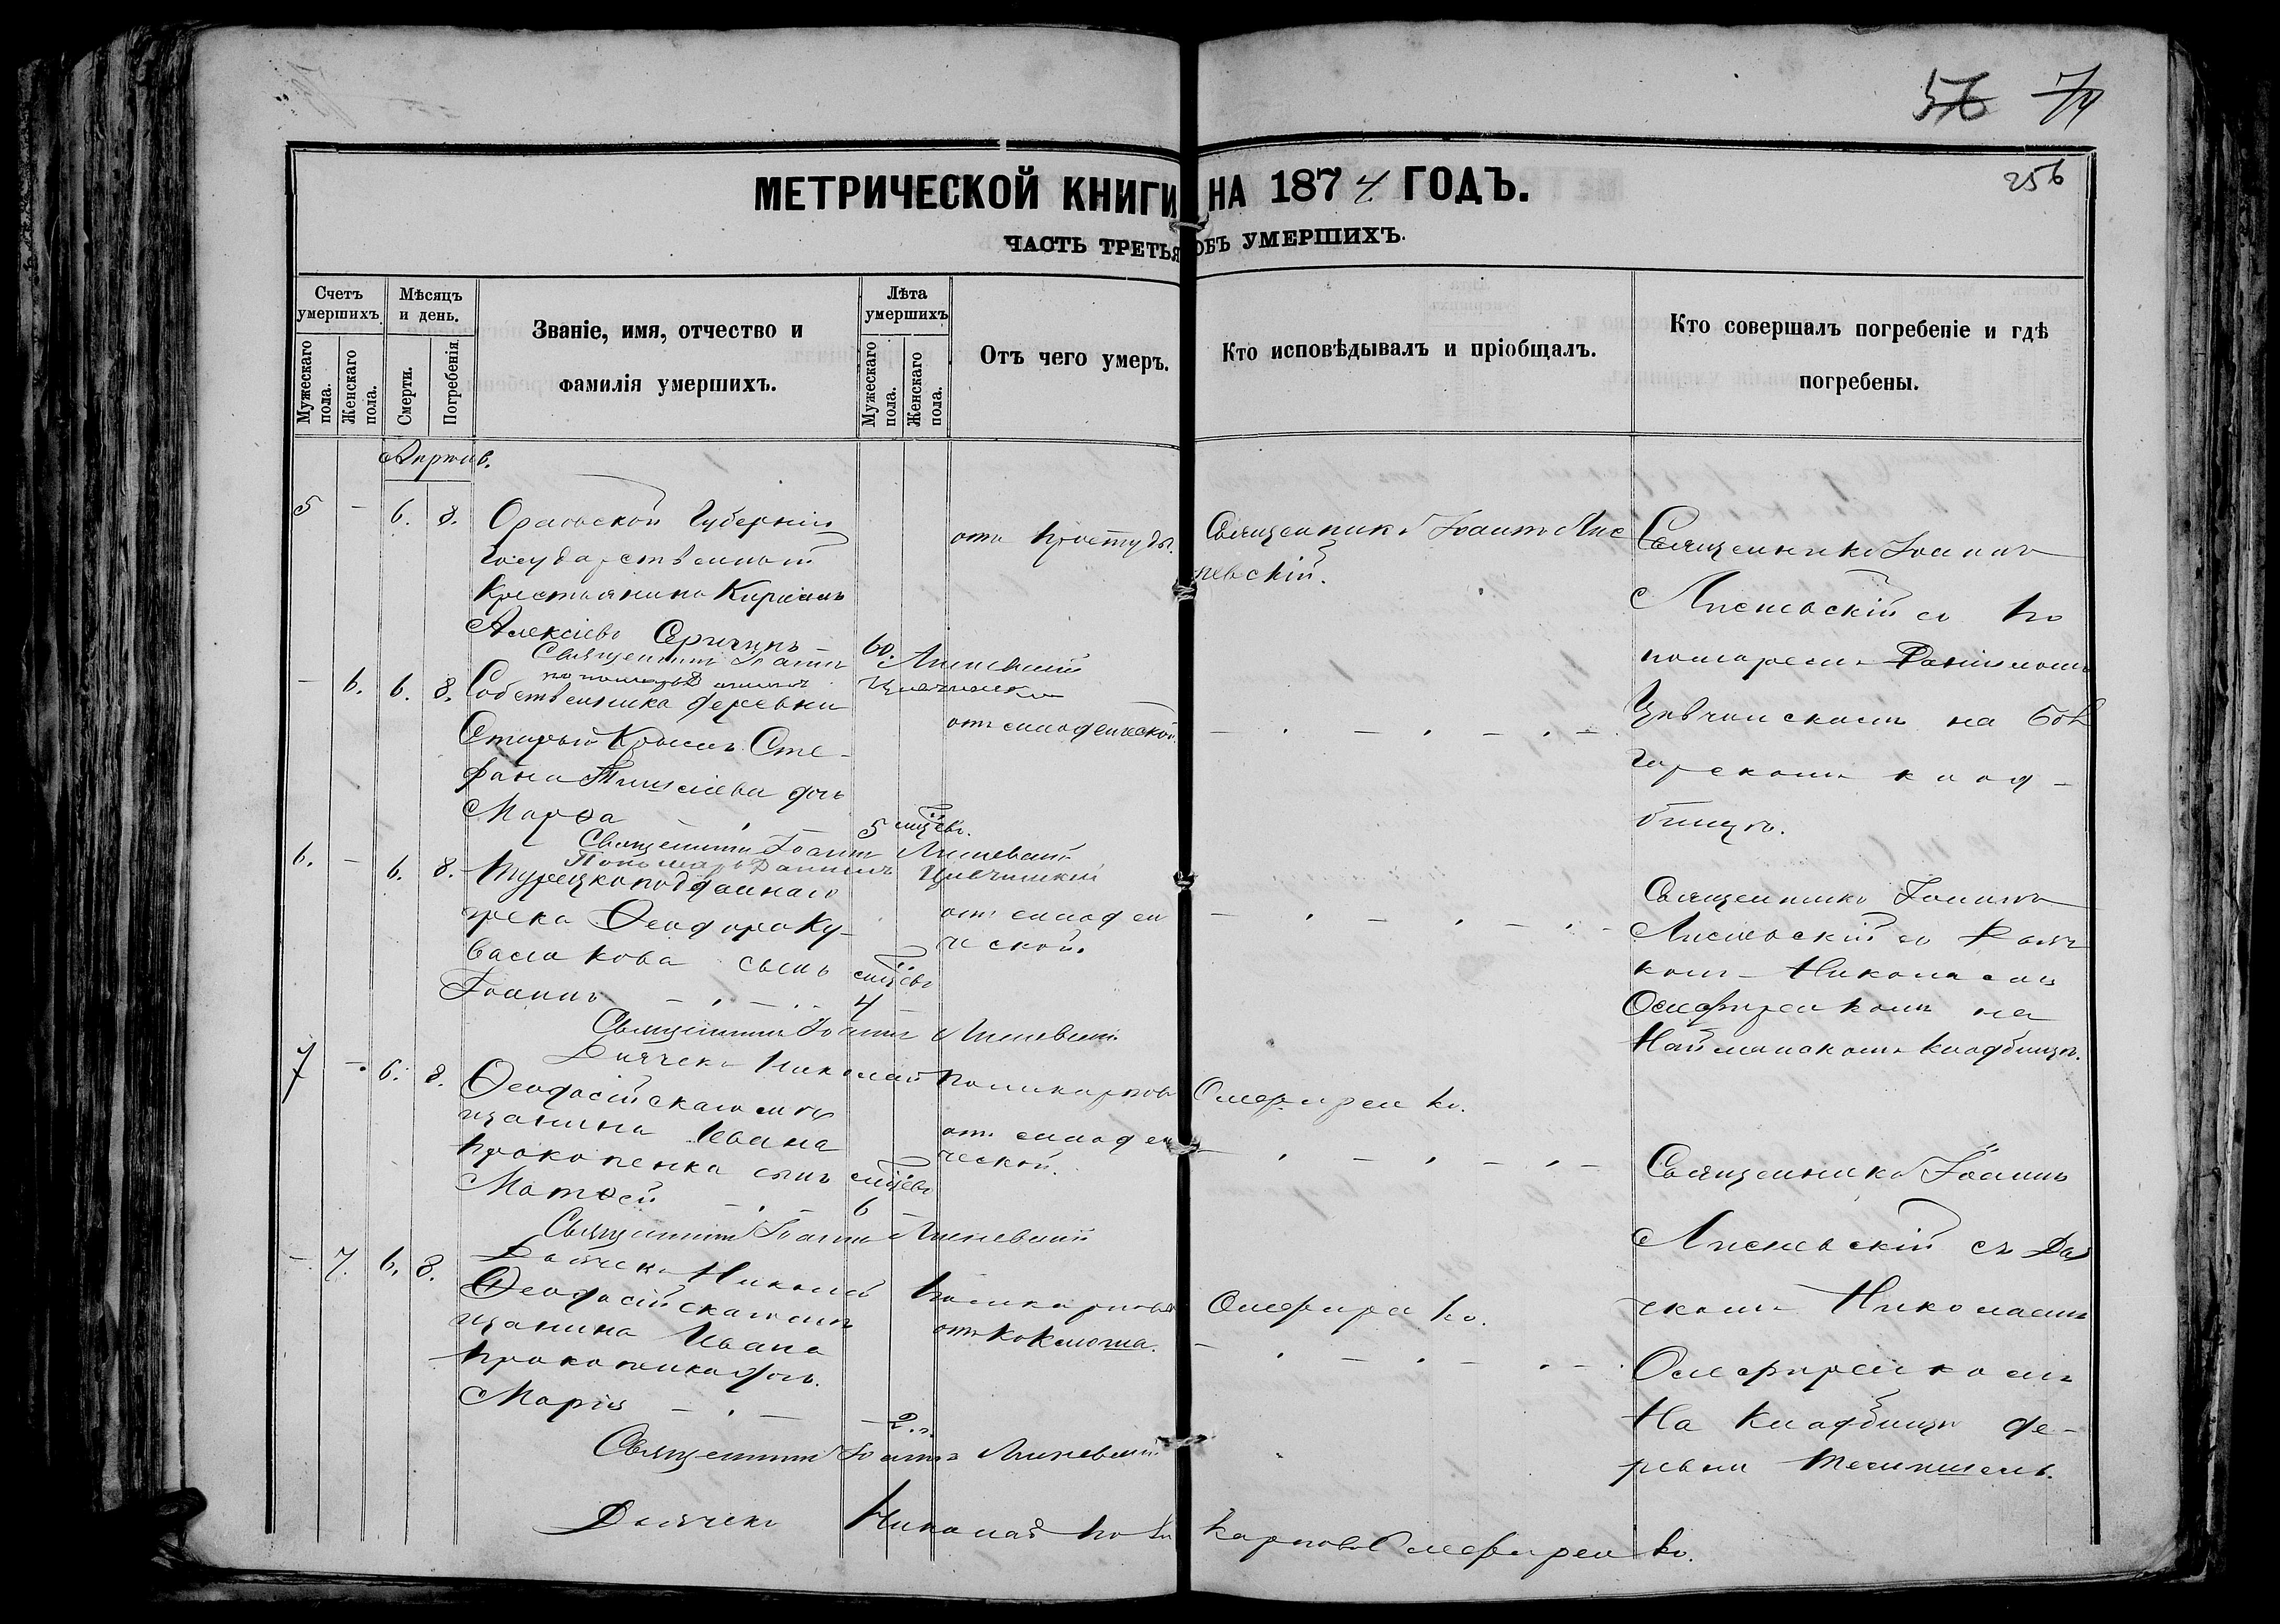 56 74
256
МЕТРИЧЕСКОЙ КНИГИ НА 1874 ГОДЪ.
ЧАСТЬ ТРЕТЬЯ ОБЪ УМЕРШИХЪ.
Счетъ умершихъ.
Мужескаго пола.
Женскаго пола.
Мѣсяцъ и день.
Смерти.
Погребенія.
Званіе, имя, отчество и
фамилія умершихъ.
Лѣта умершихъ
Мужескаго пола.
Женскаго пола.
Отъ чего умеръ.
Кто исповѣдывалъ и пріобщалъ.
Кто совершалъ погребеніе и гдѣ
погребены.
Апрѣль.
5 - 6. 8. Орловской Губерніи
Государственный
Крестьянинъ Кирилъ
Алексіевъ - 60.
отъ простуды.
Священникъ Іоаннъ Лис
невскій.
Священникъ Іоаннъ
Лисневскій съ по
номаремъ Даніиломъ
на Бол
гарскомъ клад-
бищѣ.
Священникъ Іоаннъ Лисневскій
пономарь Даніилъ
- 6. 6. 8. Собственника деревни
Старый Крымъ Сте-
фана дочь
Марѳа 5 мѣсяцевъ.
отъ младенческой.
Священникъ Іоаннъ Лисневскій
Пономарь Даніилъ
6. - 6. 8. Турецкоподданнаго
грека Ѳеодора Ку-
васакова сынъ мѣсяцевъ
Іоаннъ - 4
отъ младен
ческой.
Священникъ Іоаннъ
Лисневскій съ Дьяч
комъ Николаемъ
Олефиренкомъ на
Найманскомъ кладбищѣ.
Священникъ Іоаннъ Лисневскій
Дьячекъ Николай Поликарповъ Олефиренко.
7 - 6. 8. Ѳеодосійскаго мѣ
щанина Ивана
Прокопенка сынъ мѣсяцевъ
Матѳей - 6
отъ младен
ческой.
Священникъ Іоаннъ
Лисневскій съ Дья
чкомъ Николаемъ
Олефиренкомъ
На кладбищѣ де-
ревни
Священникъ Іоаннъ Лисневскій
Дьячекъ Николай Поликарповъ Олефиренко.
- 7. 6. 8. Ѳеодосійскаго мѣ
щанина Ивана
Прокопенка дочь
Марія - 2 г.
отъ коклюша.
Священникъ Іоаннъ Лисневскій
Дьячекъ Николай Поликарповъ Олефиренко.